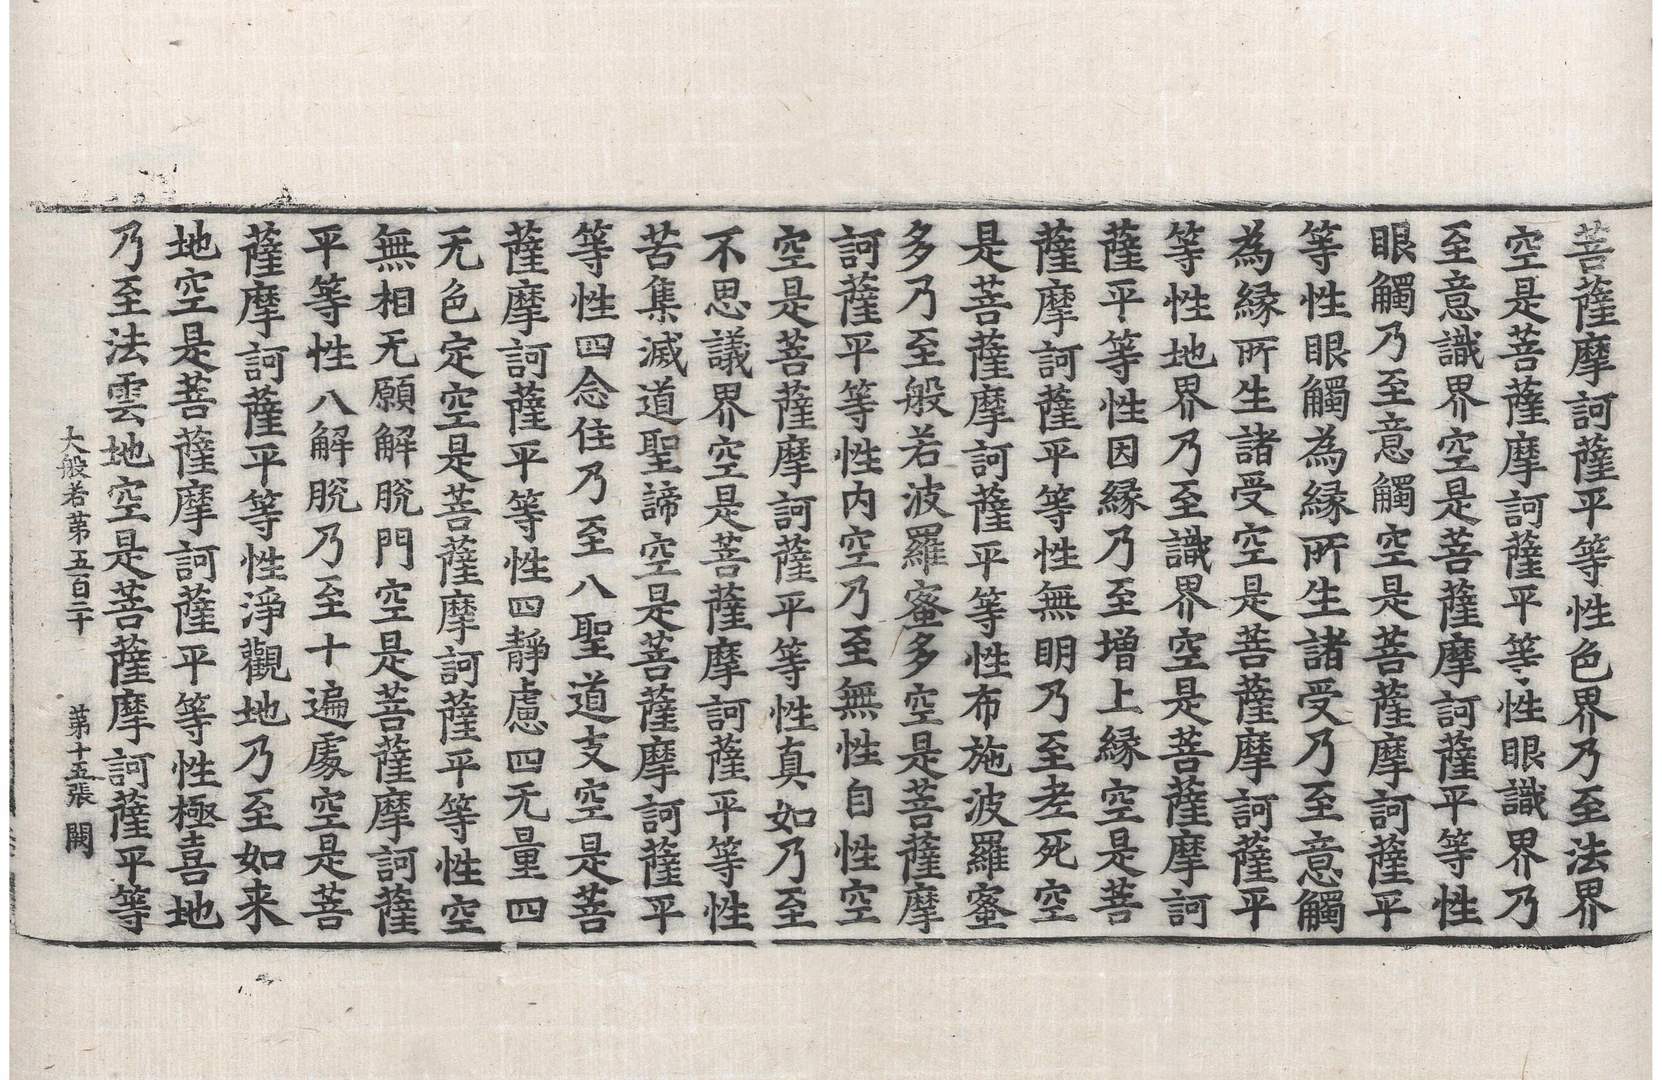 菩薩摩訶薩平等性色界乃至法界
空是菩薩摩訶薩平等性眼識界乃
至意識界空是菩薩摩訶薩平等性
眼觸乃至意觸空是菩薩摩訶薩平
等性眼觸為緣所生諸受乃至意觸
為緣所生諸受空是菩薩摩訶薩平
等性地界乃至識界空是菩薩摩訶
薩平等性因緣乃至增上緣空是菩
薩摩訶薩平等性無明乃至老死空
是菩薩摩訶薩平等性布施波羅蜜
多乃至般若波羅蜜多空是菩薩摩
訶薩平等性內空乃至無性自性空
空是菩薩摩訶薩平等性真如乃至
不思議界空是菩薩摩訶薩平等性
苦集滅道聖諦空是菩薩摩訶薩平
等性四念住乃至八聖道支空是菩
薩摩訶薩平等性四靜慮四无量四
无色定空是菩薩摩訶薩平等性空
無相无願解脫門空是菩薩摩訶薩
平等性八解脫乃至十遍處空是菩
薩摩訶薩平等性淨觀地乃至如来
地空是菩薩摩訶薩平等性極喜地
乃至法雲地空是菩薩摩訶薩平等
大般若第五百二十 第十五張 闕